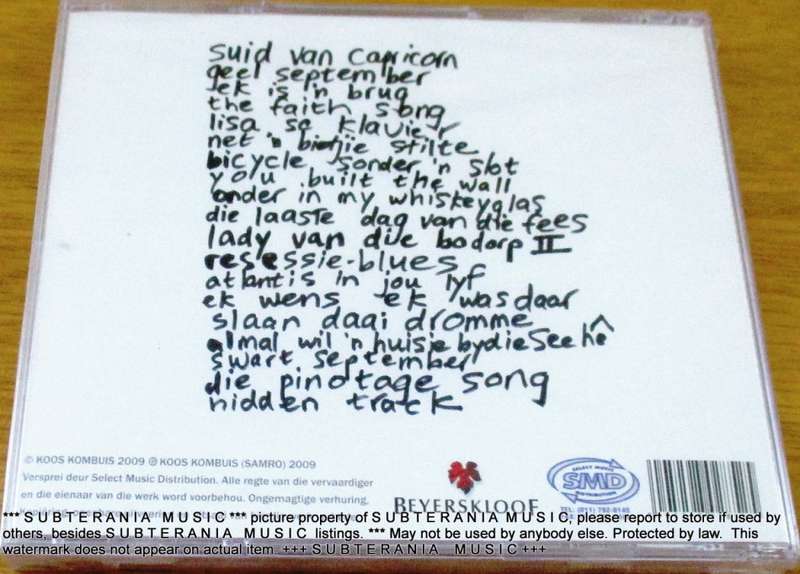 suid van capricorn
geel september
ek is 'n brug
the faith song
lisa se klavier
net 'n bietjie stilte
bicycle sonder 'n slot
you built the wall
onder in my whiskeyglas
die laaste dag van die fees
lady van die bodorp II
resessie-blues
atlantis in jou lyf
ek wens ek was daar
slaan daai dromme
almal wil 'n huisie by die see hê
swart september
die pinotage song
hidden track
© KOOS KOMBUIS 2009 ℗ KOOS KOMBUIS (SAMRO) 2009
Versprei deur Select Music Distribution. Alle regte van die vervaardiger
en die eienaar van die werk word voorbehou. Ongemagtige verhuring,
BEYERSKLOOF
SELECT MUSIC
SMD
DISTRIBUTION
*** SUBTERANIA MUSIC *** picture property of SUBTERANIA MUSIC, please report to store if used by
others, besides SUBTERANIA MUSIC listings. *** May not be used by anybody else. Protected by law. This
watermark does not appear on actual item. +++ SUBTERANIA MUSIC +++